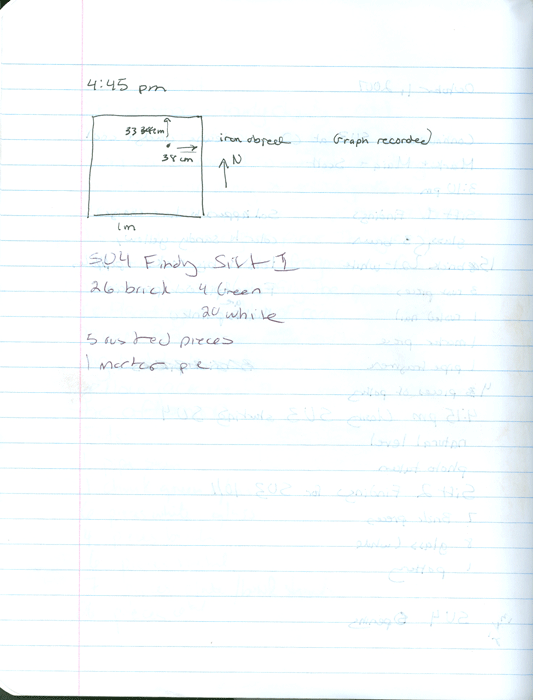 4:45 pm
33 cm
38 cm
iron object (Graph recorded)
N
1m
SU4 Findng Sift 1
26 brick 4 Green
20 white
5 rusted pieces
1 mortar pie